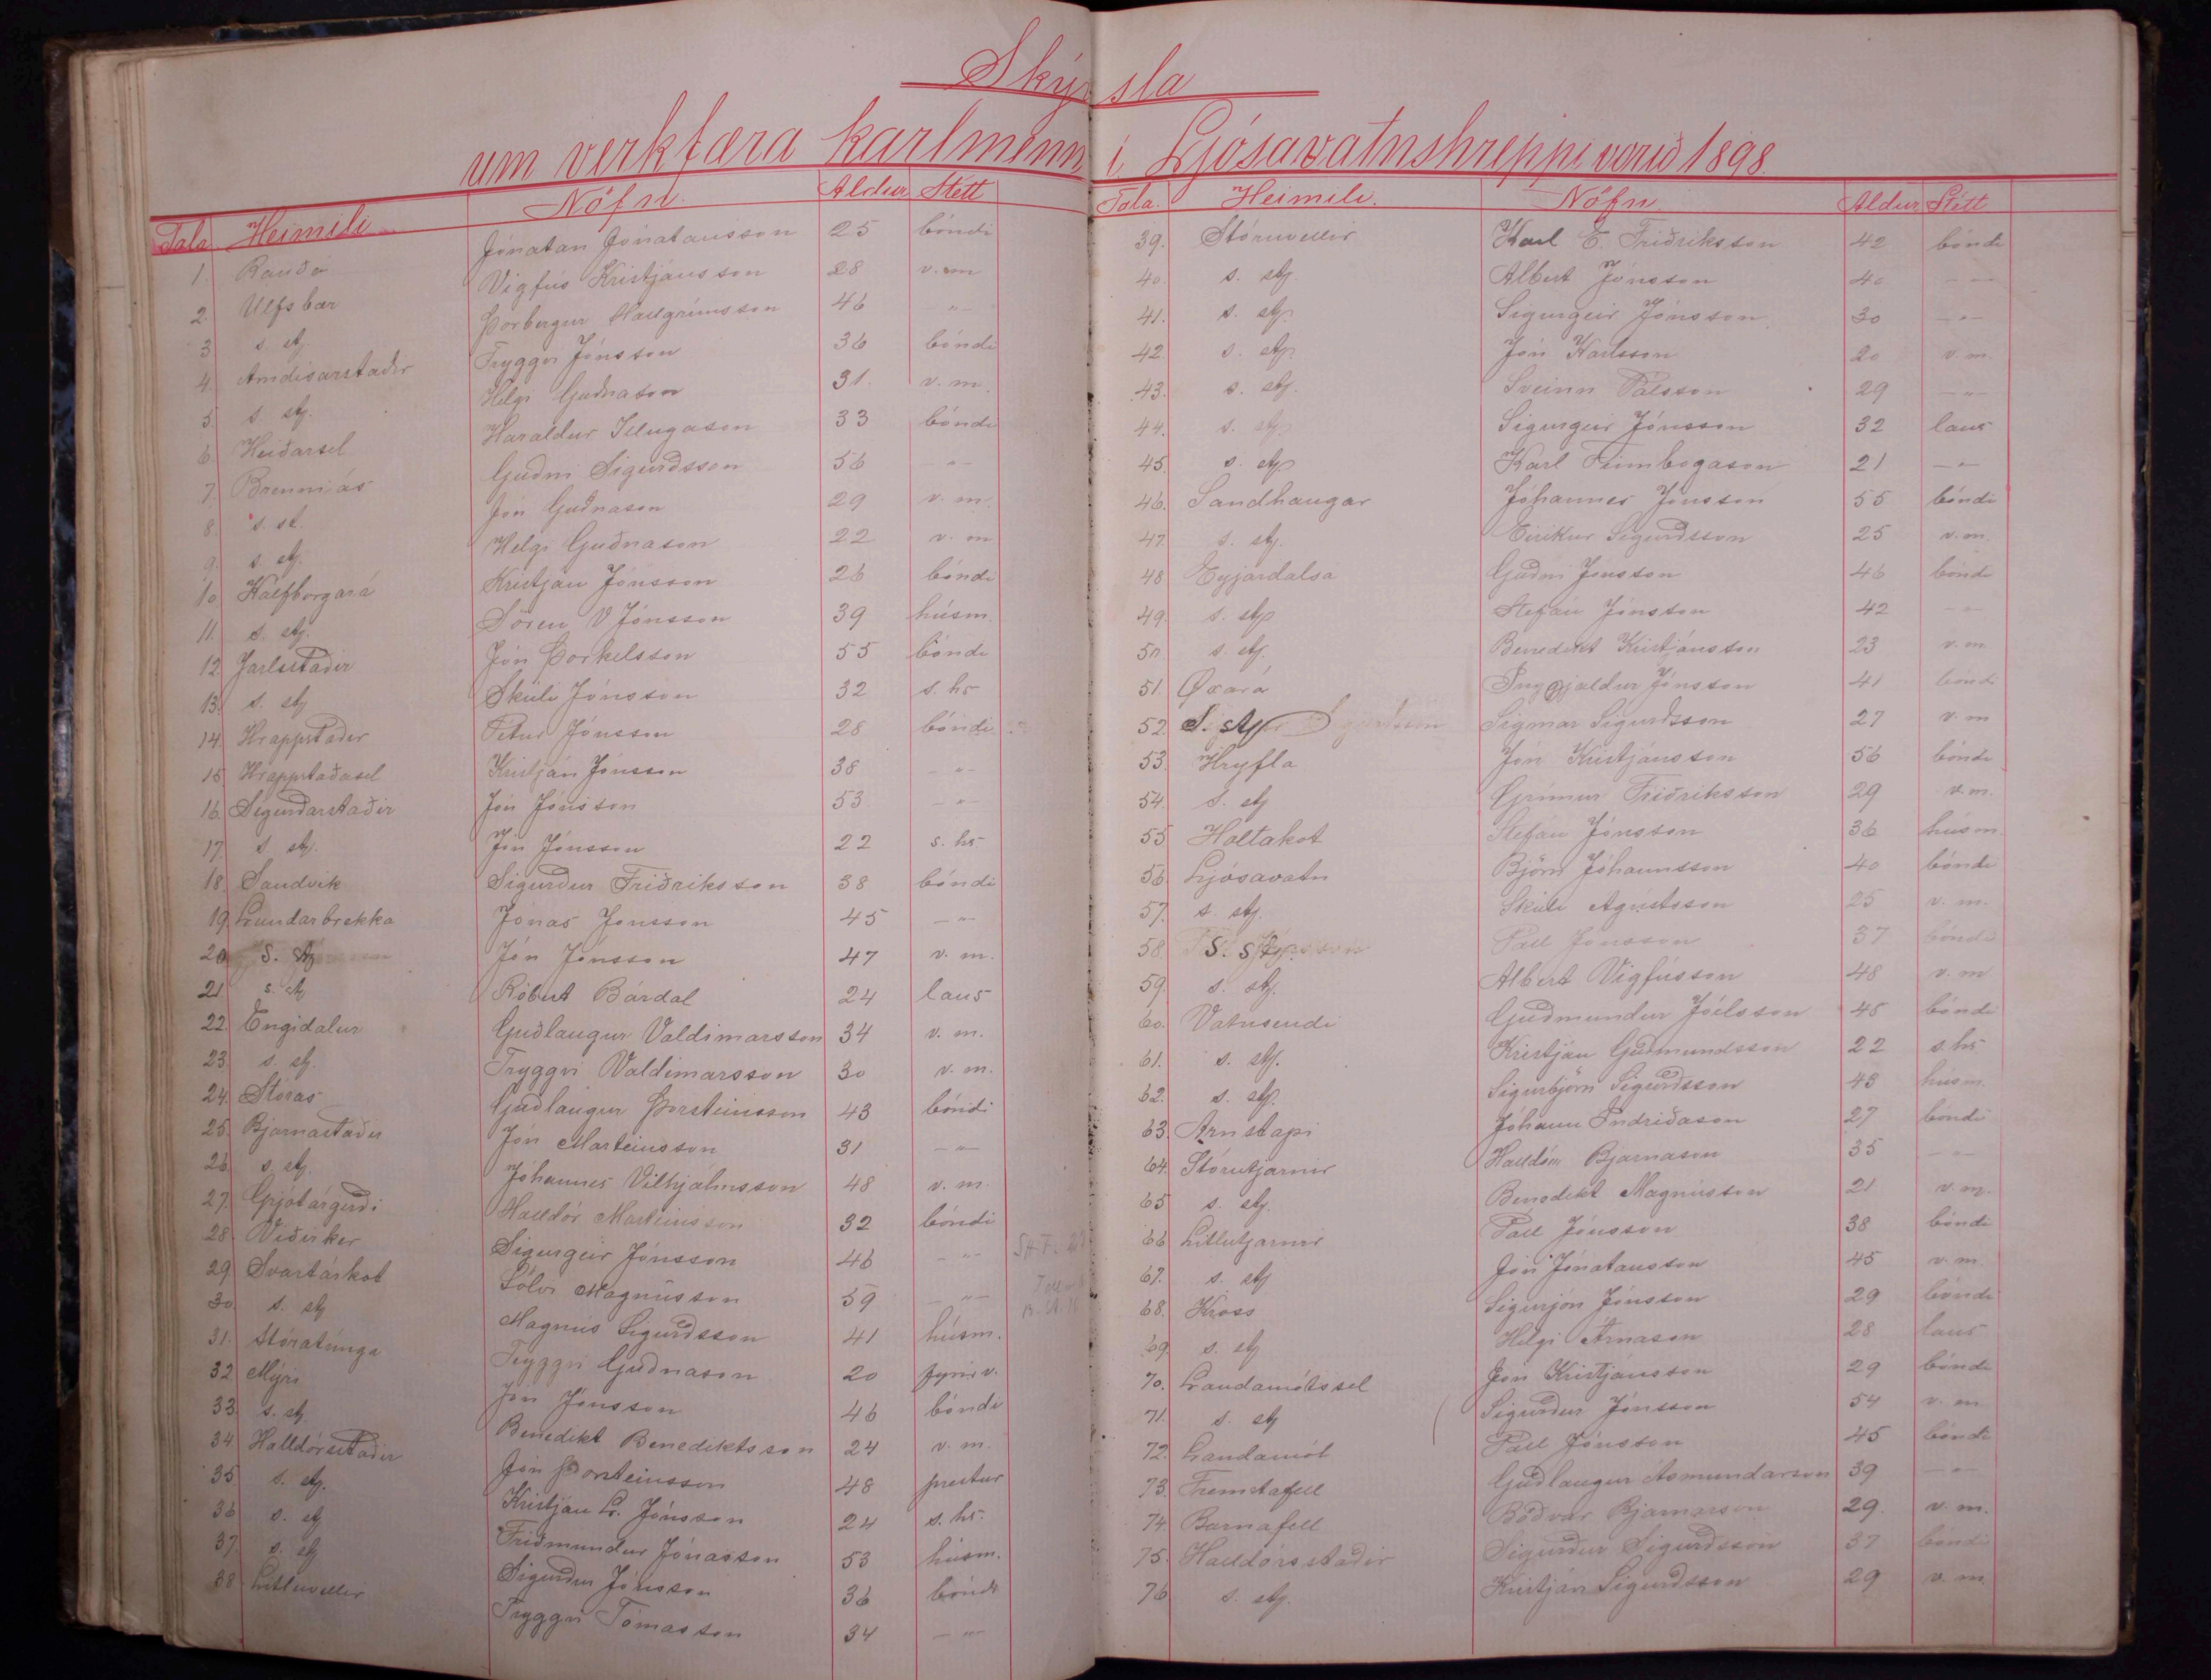 Skýrsla
um verkfæra karlmenn í Ljósavatnshreppi vorið 1898.
Tala Heimili Nöfn. Aldur Stett
1. Rauðá Jónatan Jónatansson 25 bóndi
2. Ulfsbær Vigfús Kristjánsson 28 v. m
3 s. stj Þorbergur Hallgrímsson 46 „
4. Arndísarstaðir Tryggvi Jónsson 36 bóndi
5 s. stj. Helgi Guðnason 31. v. m.
6. Heiðarsel Haraldur Illugason 33 bóndi
7. Brenniás Guðni Sigurðsson 56 -„-
8. s. st. Jón Guðnason 29 v. m.
9. s. stj. Helgi Guðnason 22 v. m
10 Kálfborgará Kristján Jónsson 26 bóndi
11. s. stj. Sören V Jónsson 39 húsm.
12. Jarlstaðir Jón Þorkelsson 55 bóndi
13. s. stj Skúli Jónsson 32 s. hs
14. Hrappstaðir Pétur Jónsson 28 bóndi
15 Hrappstaðasel Kristján Jónsson 38 -„-
16. Sigurðarstaðir Jón Jónsson 53 -„-
17. s stj. Jón Jónsson 22 s. hs
18. Sandvik Sigurður Friðriksson 38 bóndi
19. Lundarbrekka Jónas Jónsson 45 -„-
20 s. stj Jón Jónsson 47 v. m.
21 s. stj Róbert Bárdal 24 laus
22. Engidalur Guðlaugur Valdimarsson 34 v. m.
23. s. stj. Tryggvi Valdimarsson 30 v. m.
24. Stórás Guðlaugur Þorsteinsson 43 bóndi
25. Bjarnastaðir Jón Marteinsson 31 -„-
26. s. stj. Jóhannes Vilhjálmsson 48 v. m.
27. Grjótárgerði Halldór Marteinsson 32 bóndi
28. Viðirker Sigurgeir Jónsson 46 -„-
29. Svartárkot Sölvi Magnússon 59 -„-
30. s. stj Magnús Sigurðsson 41 húsm.
31. Stóratúnga Tryggvi Guðnason 20 fyriv.
32. Mýri Jón Jónsson 46 bóndi
33. s. stj. Benedikt Benediktsson 24 v. m.
34. Halldórsstaðir Jón Þorsteinsson 48 prestur
35 s. stj. Kristján L. Jónsson 24 s. hs.
36 s. stj Friðmundur Jónasson 53 húsm.
37. s. stj Sigurður Jónsson 36 bóndi
38 Litluvellir Tryggvi Tómasson 34 -„-
Tala. Heimili. Nöfn. Aldur Stétt
39. Stóruvellir Karl E. Friðriksson 42 bóndi
40. s. stj. Albert Jónsson 40 -„-
41. s. stj. Sigurgeir Jónsson 30 -„-
42. s. stj. Jón Karlsson 20 v. m
43. s. stj. Sveinn Pálsson 29 -„-
44. s. stj. Sigurgeir Jónsson 32 laus
45. s. stj. Karl Finnbogason 21 -„-
46. Sandhaugar Jóhannes Jónsson 55 bóndi
47. s. stj. Eirikur Sigurðsson 25 v. m.
48 Eyjardalsá Guðni Jónsson 46 bóndi
49. s. stj. Stefán Jónsson 42 -„-
50. s. stj. Benedikt Kristjánsson 23 v. m
51. Øxará Ingjaldur Jónsson 41 bóndi
52. s. stj. Sigmar Sigurðsson 27 v. m
53. Hryfla Jón Kristjánsson 56 bóndi
54. s. stj Grímur Friðriksson 29 v. m.
55. Holtakot Stefán Jónsson 36 húsm.
56. Ljósavatn Björn Jóhannsson 40 bóndi
57. s. stj. Skúli Agústsson 25 v. m.
58. s. stj. Páll Jónsson 37 bóndi
59. s. stj. Albert Vigfússon 48 v. m
60. Vatnsendi Guðmundur Jóelsson 45 bóndi
61. s. stj. Kristján Guðmundsson 22 s. hs
62. s. stj. Sigurbjörn Sigurðsson 43 húsm.
63. Arnstapi Jóhann Indriðason 27 bóndi
64. Stórutjarnir Halldór Bjarnason 35 -„-
65 s. stj. Benedikt Magnússon 21 v. m.
66 Litlutjarnir Páll Jónsson 38 bóndi
67. s. stj Jón Jónatansson 45 v. m.
68. Kross Sigurjón Jónsson 29 bóndi
69. s. stj Helgi Árnason 28 laus
70. Landamótssel Jón Kristjánsson 29 bóndi
71. s. stj Sigurður Jónsson 54 v. m
72. Landamót Páll Jónsson 45 bóndi
73. Fremstafell Guðlaugur Ásmundarson 39 -„-
74. Barnafell Böðvar Bjarnarson 29. v. m.
75. Halldórsstaðir Sigurður Sigurðsson 37 bóndi
76 s. stj. Kristján Sigurðsson 29 v. m.